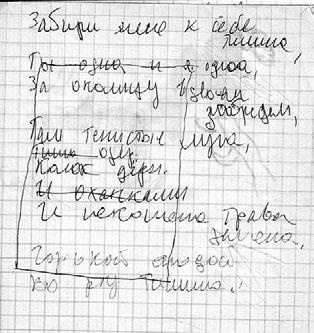 Забири мене к себе
тишина,
Ты одна и я одна,
За околицу вдвоем
забредем,
Там тенистые луга,
тиши озер.
Колок
И охапками
И некошена трава
зелена,
Горькой ягодой
во рту тишина.